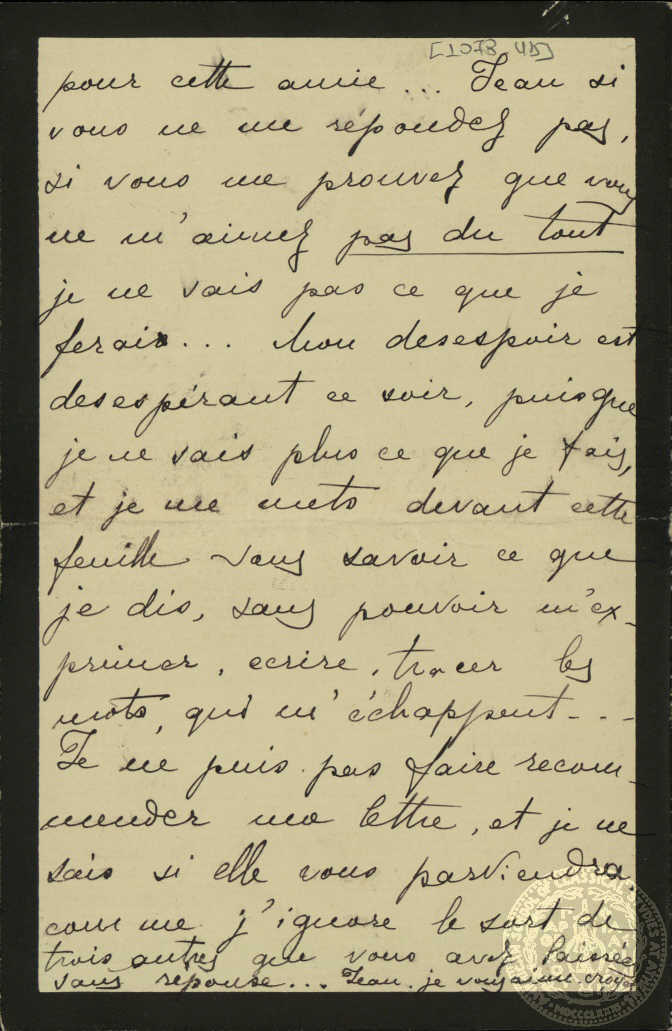 [1078 45]
pour cette amie... Jean si
vous ne me répondez pas,
si vous me prouvez que vous
ne m'aimez pas du tout
je ne sais pas ce que je
ferais... Mon desespoir est
desespérant ce soir, puisque
je ne sais plus ce que je fais,
et je me mets devant cette
feuille sans savoir ce que
je dis, sans pouvoir m'ex-
primer, ecrire, tracer les
mots, qui m'échappent...
Je ne puis pas faire recom-
mender ma lettre, et je ne
sais si elle vous parviendra.
comme j'ignore le sort de
trois autres que vous avez laissées
sans reponse... Jean. je vous aime. croyez